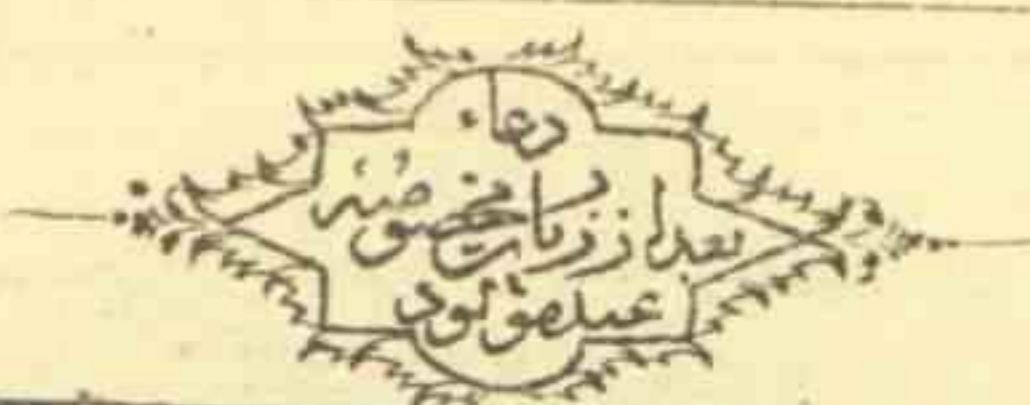 دعاء
بعد از زیارت مخصوصه
عید مولود